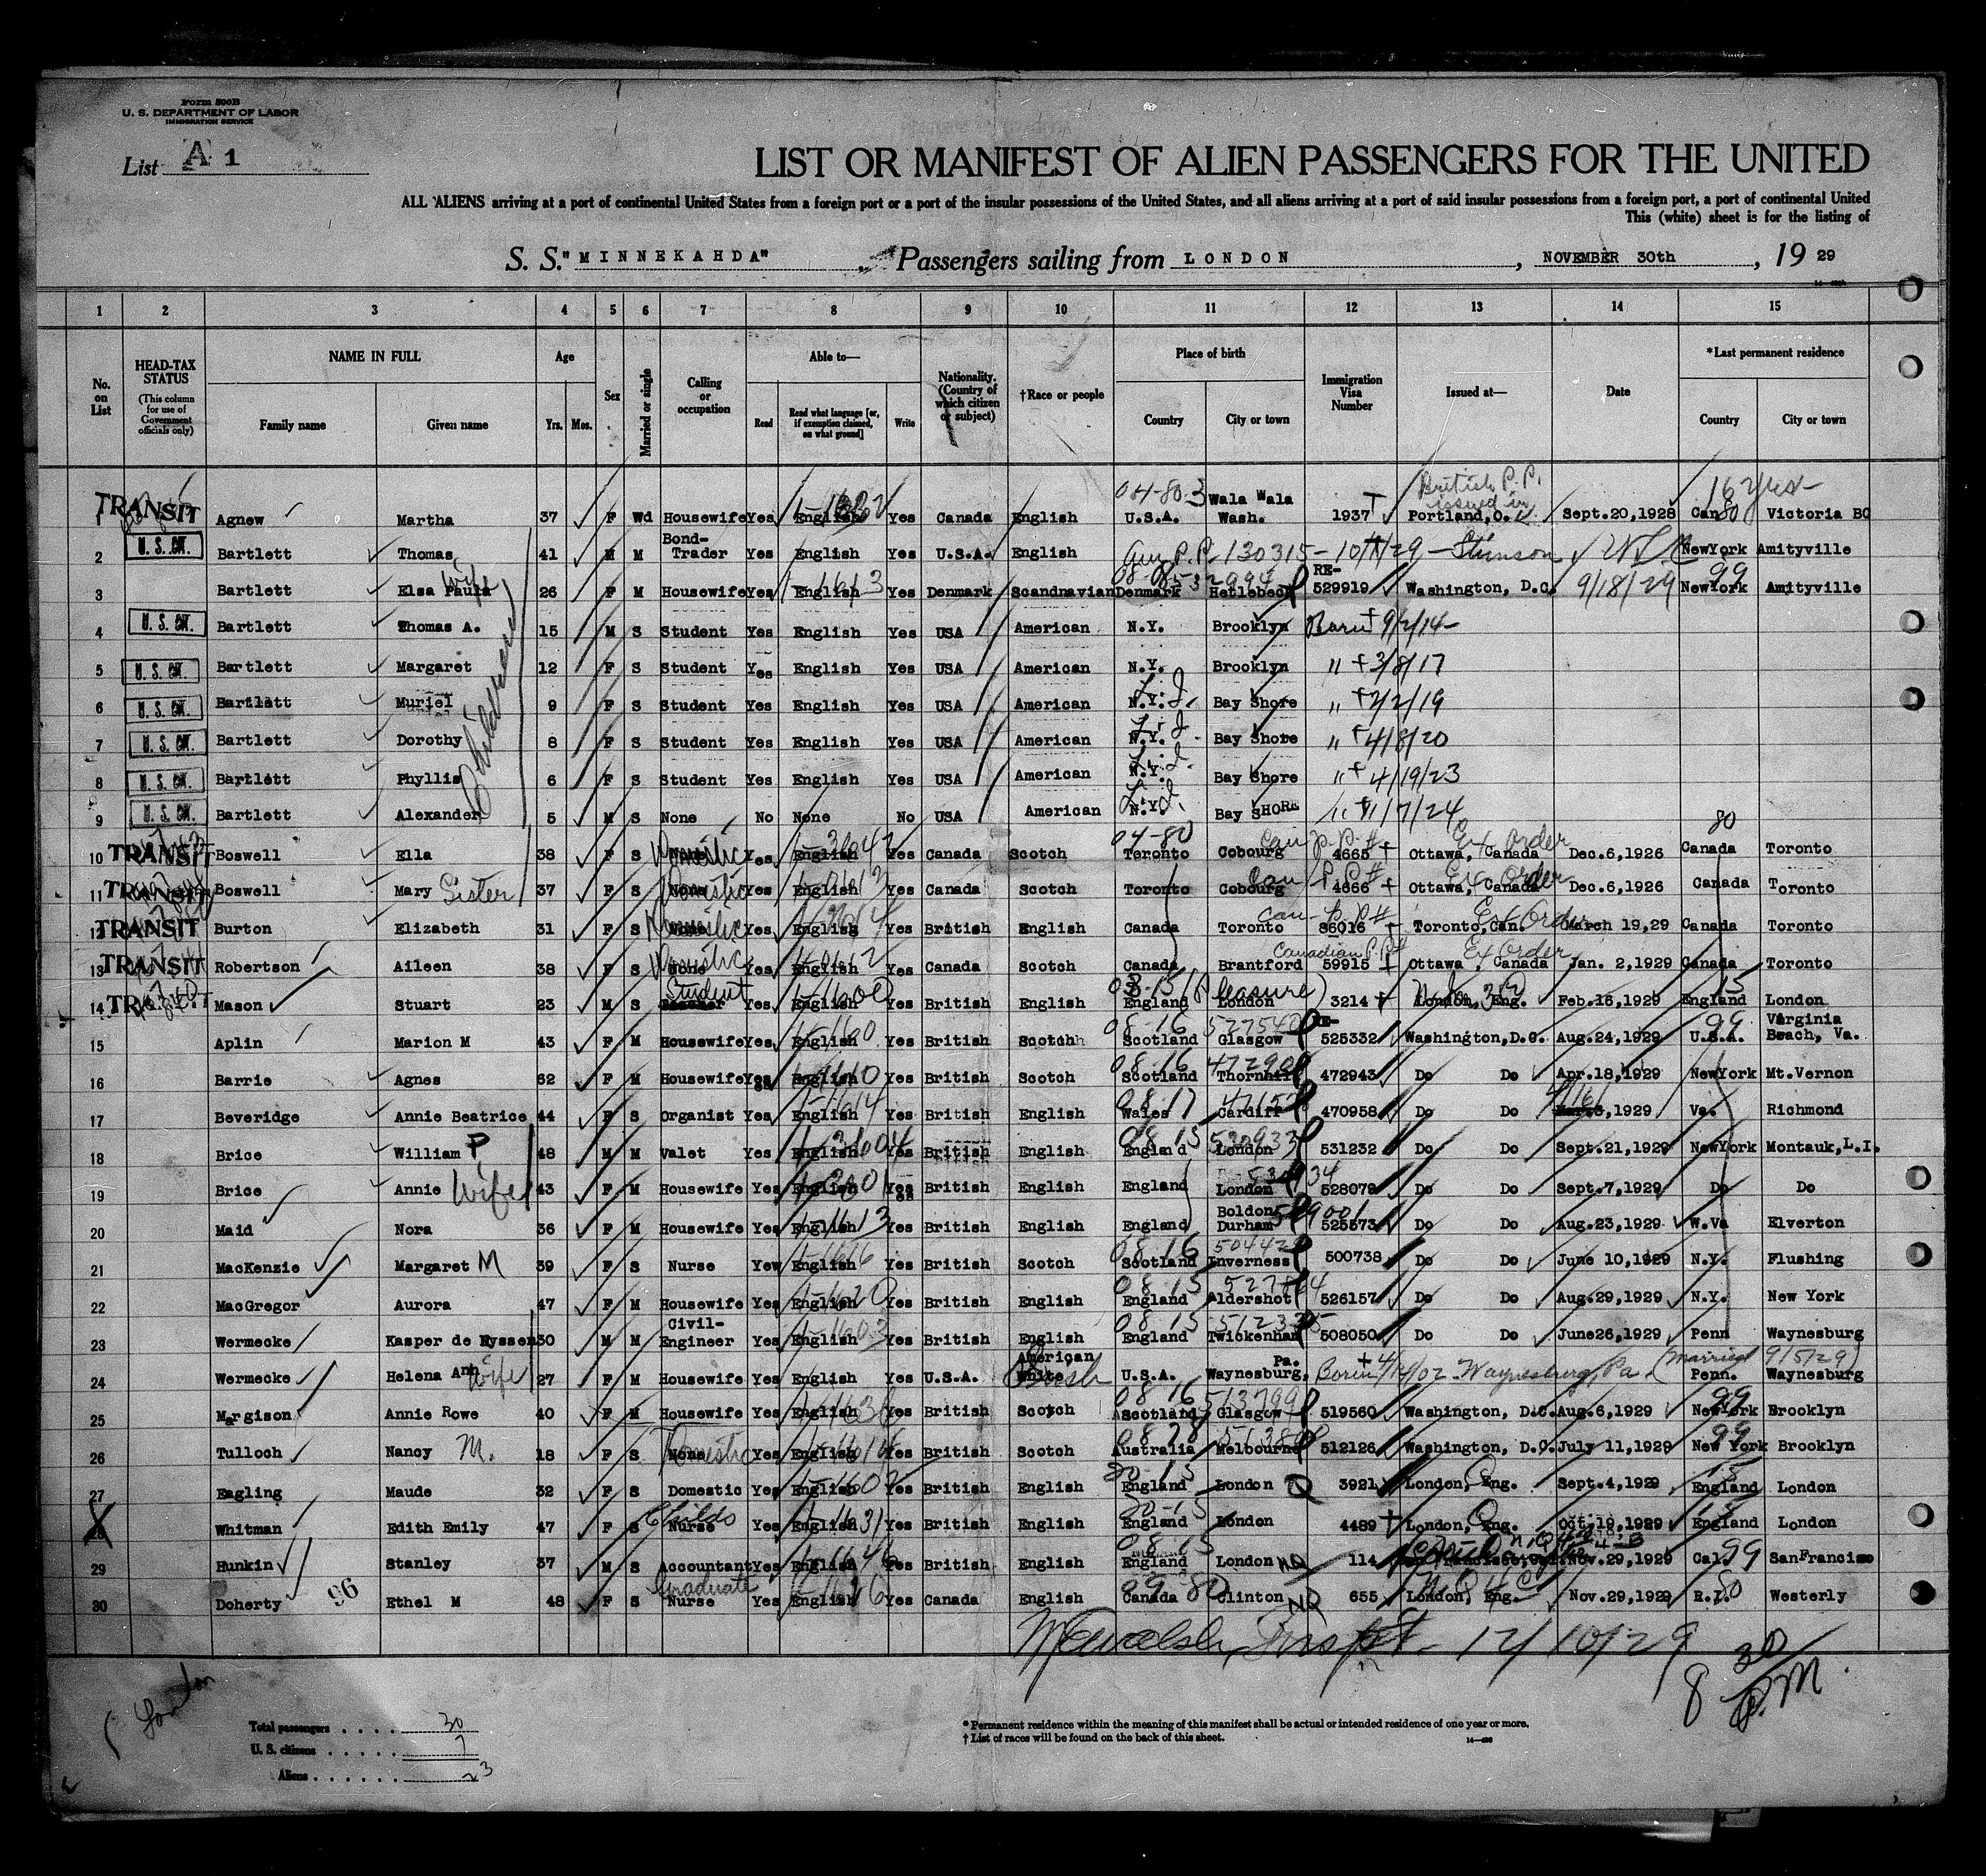 Form 500B
U. S. DEPARTMENT OF LABOR
IMMIGRATION SERVICE
List A 1
LIST OR MANIFEST OF ALIEN PASSENGERS FOR THE UNITED
ALL ALIENS arriving at a port of continental United States from a foreign port or a port of the insular possessions of the United States, and all aliens arriving at a port of said insular possessions from a foreign port, a port of continental United
This (white) sheet is for the listing of
S. S. "MINNEKAHDA" Passengers sailing from LONDON, NOVEMBER 30th, 19 29
1 2 3 4 5 6 7 8 9 10 11 12 13 14 15
No. on List
HEAD-TAX STATUS (This column for use of Government officials only)
NAME IN FULL Family name Given name
Age Yrs. Mos.
Sex
Married or single
Calling or occupation
Able to— Read Read what language [or, if exemption claimed, on what ground] Write
Nationality. (Country of which citizen or subject)
†Race or people
Place of birth Country City or town
Immigration Visa Number
Issued at—
Date
*Last permanent residence Country City or town
1 TRANSIT Agnew Martha 37 F Wd Housewife Yes English Yes Canada English 04-80-3 U.S.A. Wala Wala Wash. 1937 British P.P. issued in Portland,O. Sept.20,1928 16 yrs Can 80 Victoria BC
2 U.S. CIT. Bartlett Thomas 41 M M Bond-Trader Yes English Yes U.S.A. English P.P. 130315 - 10/ /29 - Stimson NewYork Amityville
3 Bartlett Elsa Paula Wife 26 F M Housewife Yes English Yes Denmark Scandnavian Denmark Hetlebeck RE-529919 Washington, D.C. 9/18/29 99 NewYork Amityville
4 U.S. CIT. Bartlett Thomas A. 15 M S Student Yes English Yes USA American N.Y. Brooklyn Born 9/2/14
5 U.S. CIT. Bartlett Margaret 12 F S Student Yes English Yes USA American N.Y. Brooklyn " 3/8/17
6 U.S. CIT. Bartlett Muriel 9 F S Student Yes English Yes USA American N.Y. L.I. Bay Shore " 2/2/19
7 U.S. CIT. Bartlett Dorothy 8 F S Student Yes English Yes USA American N.Y. L.I. Bay Shore " 4/8/20
8 U.S. CIT. Bartlett Phyllis 6 F S Student Yes English Yes USA American N.Y. L.I. Bay Shore " 4/19/23
9 U.S. CIT. Bartlett Alexander 5 M S None No None No USA American N.Y. L.I. Bay SHORE " 11/7/24
Children
10 TRANSIT Boswell Ella 38 F S Domestic Yes English Yes Canada Scotch 04-80 Toronto Cobourg Can P.P.# 4665 Ottawa, Canada Ex Order Dec.6,1926 80 Canada Toronto
11 TRANSIT Boswell Mary Sister 37 F S None Domestic Yes English Yes Canada Scotch Toronto Cobourg Can P.P.# 4666 Ottawa, Canada Ex Order Dec.6,1926 Canada Toronto
12 TRANSIT Burton Elizabeth 31 F S Domestic Yes English Yes British English Canada Toronto Can P.P.# 86016 Toronto,Can. Ex Order March 19,29 Canada Toronto
13 TRANSIT Robertson Aileen 38 F S None Domestic Yes English Yes Canada Scotch Canada Brantford Canadian P.P.# 59915 Ottawa, Canada Ex Order Jan. 2,1929 Canada Toronto
14 TRANSIT Mason Stuart 23 M S Student Yes English Yes British English 08-15 England London (Pleasure) 3214 London, Eng. Feb.16,1929 15 England London
15 Aplin Marion M 43 F M Housewife Yes English Yes British Scotch 08-16 Scotland Glasgow RE-525332 Washington,D.C. Aug.24,1929 99 U.S.A. Virginia Beach, Va.
16 Barrie Agnes 62 F M Housewife Yes English Yes British Scotch 08-16 Scotland Thornhill 472943 Do Do Apr.18,1929 NewYork Mt.Vernon
17 Beveridge Annie Beatrice 44 F S Organist Yes English Yes British English 08-17 Wales Cardiff 470958 Do Do 4/16/ Mar.3,1929 Va. Richmond
18 Brice William P 48 M M Valet Yes English Yes British English 08 15 England London 531232 Do Do Sept.21,1929 NewYork Montauk,L.I.
19 Brice Annie Wife 43 F M Housewife Yes English Yes British English England London 528079 Do Do Sept.7,1929 Do Do
20 Maid Nora 36 F M Housewife Yes English Yes British English England Boldon Durham 525573 Do Do Aug.23,1929 W.Va Elverton
21 MacKenzie Margaret M 39 F S Nurse Yew English Yes British Scotch 08 16 Scotland Inverness 500738 Do Do June 10,1929 N.Y. Flushing
22 MacGregor Aurora 47 F M Housewife Yes English Yes British English 08 15 England Aldershot 526157 Do Do Aug.29,1929 N.Y. New York
23 Wermecke Kasper de Nyssen 30 M M Civil-Engineer Yes English Yes British English 08 15 England Twickenham 508050 Do Do June26,1929 Penn Waynesburg
24 Wermecke Helena Ann Wife 27 F M Housewife Yes English Yes U.S.A. American White U.S.A. Waynesburg, Pa. Born Waynesburg, Pa (married 9/5/29) Penn. Waynesburg
25 Margison Annie Rowe 40 F M Housewife Yes English Yes British Scotch 08 16 Scotland Glasgow 519560 Washington, D.C. Aug.6,1929 99 NewYork Brooklyn
26 Tulloch Nancy M. 18 F S None Domestic Yes English Yes British Scotch 08 28 Australia Melbourne 512126 Washington, D.C. July 11,1929 99 New York Brooklyn
27 Eagling Maude 32 F S Domestic Yes English Yes British English 20-15 England London Q 3921 London, Eng. Sept.4,1929 15 England London
28 Whitman Edith Emily 47 F S Childs Nurse Yes English Yes British English 20-15 England London 4489 London, Eng. Oct.19,1929 15 England London
29 Hunkin Stanley 37 M S Accountant Yes English Yes British English 08 15 England London NQ 114 Nov.29,1929 Cal. 99 SanFrancisco
30 Doherty Ethel M 48 F S Graduate Nurse Yes English Yes Canada English 99-80 Canada Clinton NQ 655 London, Eng. Nov.29,1929 R.I. 80 Westerly
96
Inspt. 12/10/29
8 30 P.M
(London
Total passengers . . . . 30
U. S. citizens . . . . . 7
Aliens . . . . . . 23
* Permanent residence within the meaning of this manifest shall be actual or intended residence of one year or more.
† List of races will be found on the back of this sheet.